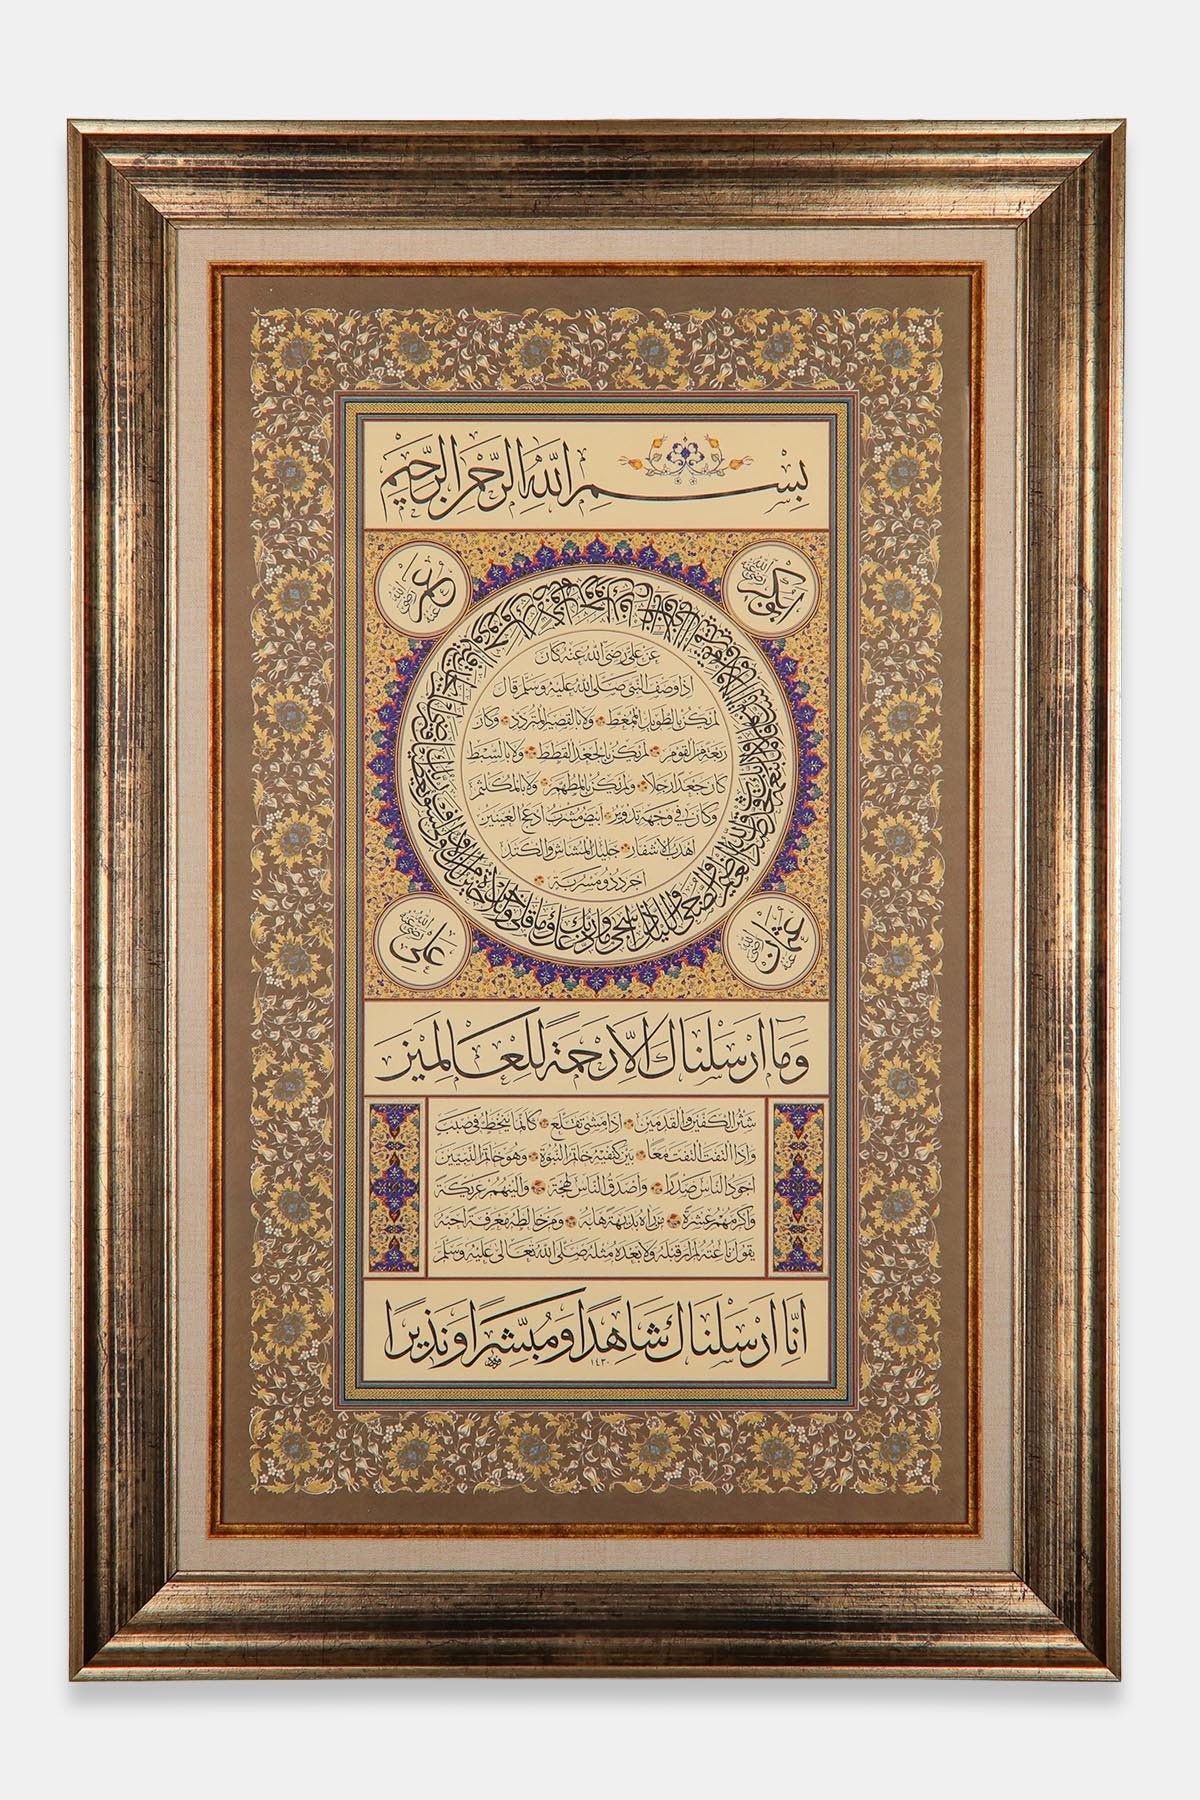 بِسْمِ اللّٰهِ الرَّحْمٰنِ الرَّحِيمِ
ابو بكر رضي الله عنه
عمر رضي الله عنه
عن علي رضي الله عنه كان
اذا وصف النبي صلى الله عليه وسلم قال
لم يكن بالطويل الممغط ولا بالقصير المتردد وكان
ربعة من القوم لم يكن بالجعد القطط ولا بالسبط
كان جعدا رجلا ولم يكن بالمطهم ولا بالمكلثم
وكان في وجهه تدوير ابيض مشرب ادعج العينين
اهدب الاشفار جليل المشاش والكتد
اجرد ذو مسربة
عثمان رضي الله عنه
علي رضي الله عنه
وما ارسلناك الا رحمة للعالمين
شثن الكفين والقدمين اذا مشى تقلع كانما ينحط في صبب
واذا التفت التفت معا بين كتفيه خاتم النبوة وهو خاتم النبيين
اجود الناس صدرا واصدق الناس لهجة والينهم عريكة
واكرمهم عشرة من رآه بديهة هابه ومن خالطه معرفة احبه
يقول ناعته لم ار قبله ولا بعده مثله صلى الله تعالى عليه وسلم
انا ارسلناك شاهدا ومبشرا ونذيرا
١٤٣٠